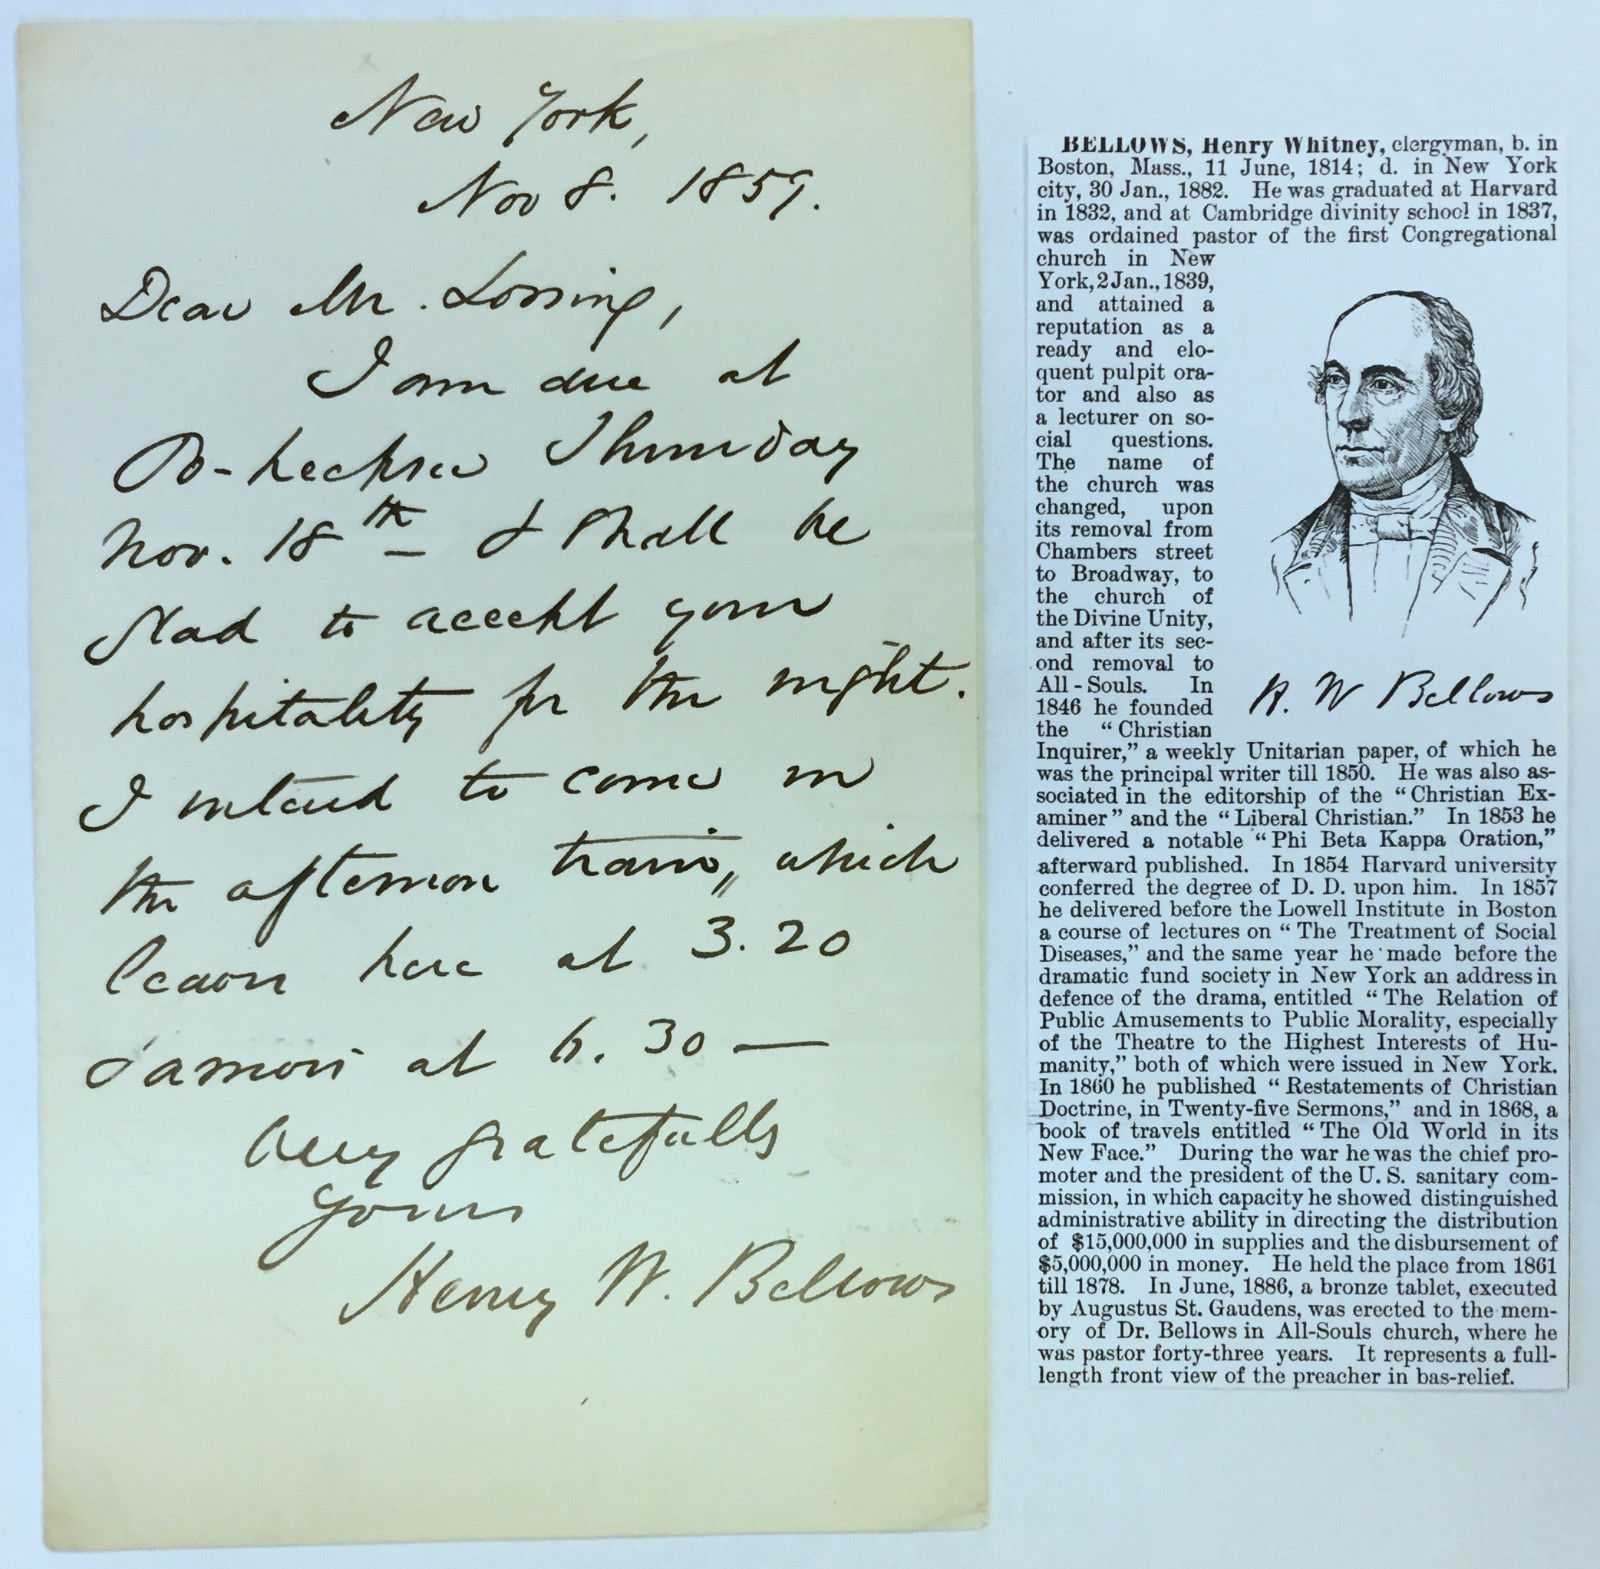 New York,
Nov 8. 1859.
Dear Mr. Lossing,
I am due at
Po-keepsie Thursday
Nov. 18th — & shall be
glad to accept your
hospitality for the night.
I intend to come in
the afternoon train, which
leaves here at 3.20
& arrives at 6.30 —
Very gratefully
Yours
Henry W. Bellows
BELLOWS, Henry Whitney, clergyman, b. in
Boston, Mass., 11 June, 1814; d. in New York
city, 30 Jan., 1882. He was graduated at Harvard
in 1832, and at Cambridge divinity school in 1837,
was ordained pastor of the first Congregational
church in New
York, 2 Jan., 1839,
and attained a
reputation as a
ready and elo-
quent pulpit ora-
tor and also as
a lecturer on so-
cial questions.
The name of
the church was
changed, upon
its removal from
Chambers street
to Broadway, to
the church of
the Divine Unity,
and after its sec-
ond removal to
All-Souls. In
1846 he founded
the “Christian
H. W Bellows
Inquirer,” a weekly Unitarian paper, of which he
was the principal writer till 1850. He was also as-
sociated in the editorship of the “Christian Ex-
aminer” and the “Liberal Christian.” In 1853 he
delivered a notable “Phi Beta Kappa Oration,”
afterward published. In 1854 Harvard university
conferred the degree of D. D. upon him. In 1857
he delivered before the Lowell Institute in Boston
a course of lectures on “The Treatment of Social
Diseases,” and the same year he made before the
dramatic fund society in New York an address in
defence of the drama, entitled “The Relation of
Public Amusements to Public Morality, especially
of the Theatre to the Highest Interests of Hu-
manity,” both of which were issued in New York.
In 1860 he published “Restatements of Christian
Doctrine, in Twenty-five Sermons,” and in 1868, a
book of travels entitled “The Old World in its
New Face.” During the war he was the chief pro-
moter and the president of the U. S. sanitary com-
mission, in which capacity he showed distinguished
administrative ability in directing the distribution
of $15,000,000 in supplies and the disbursement of
$5,000,000 in money. He held the place from 1861
till 1878. In June, 1886, a bronze tablet, executed
by Augustus St. Gaudens, was erected to the mem-
ory of Dr. Bellows in All-Souls church, where he
was pastor forty-three years. It represents a full-
length front view of the preacher in bas-relief.